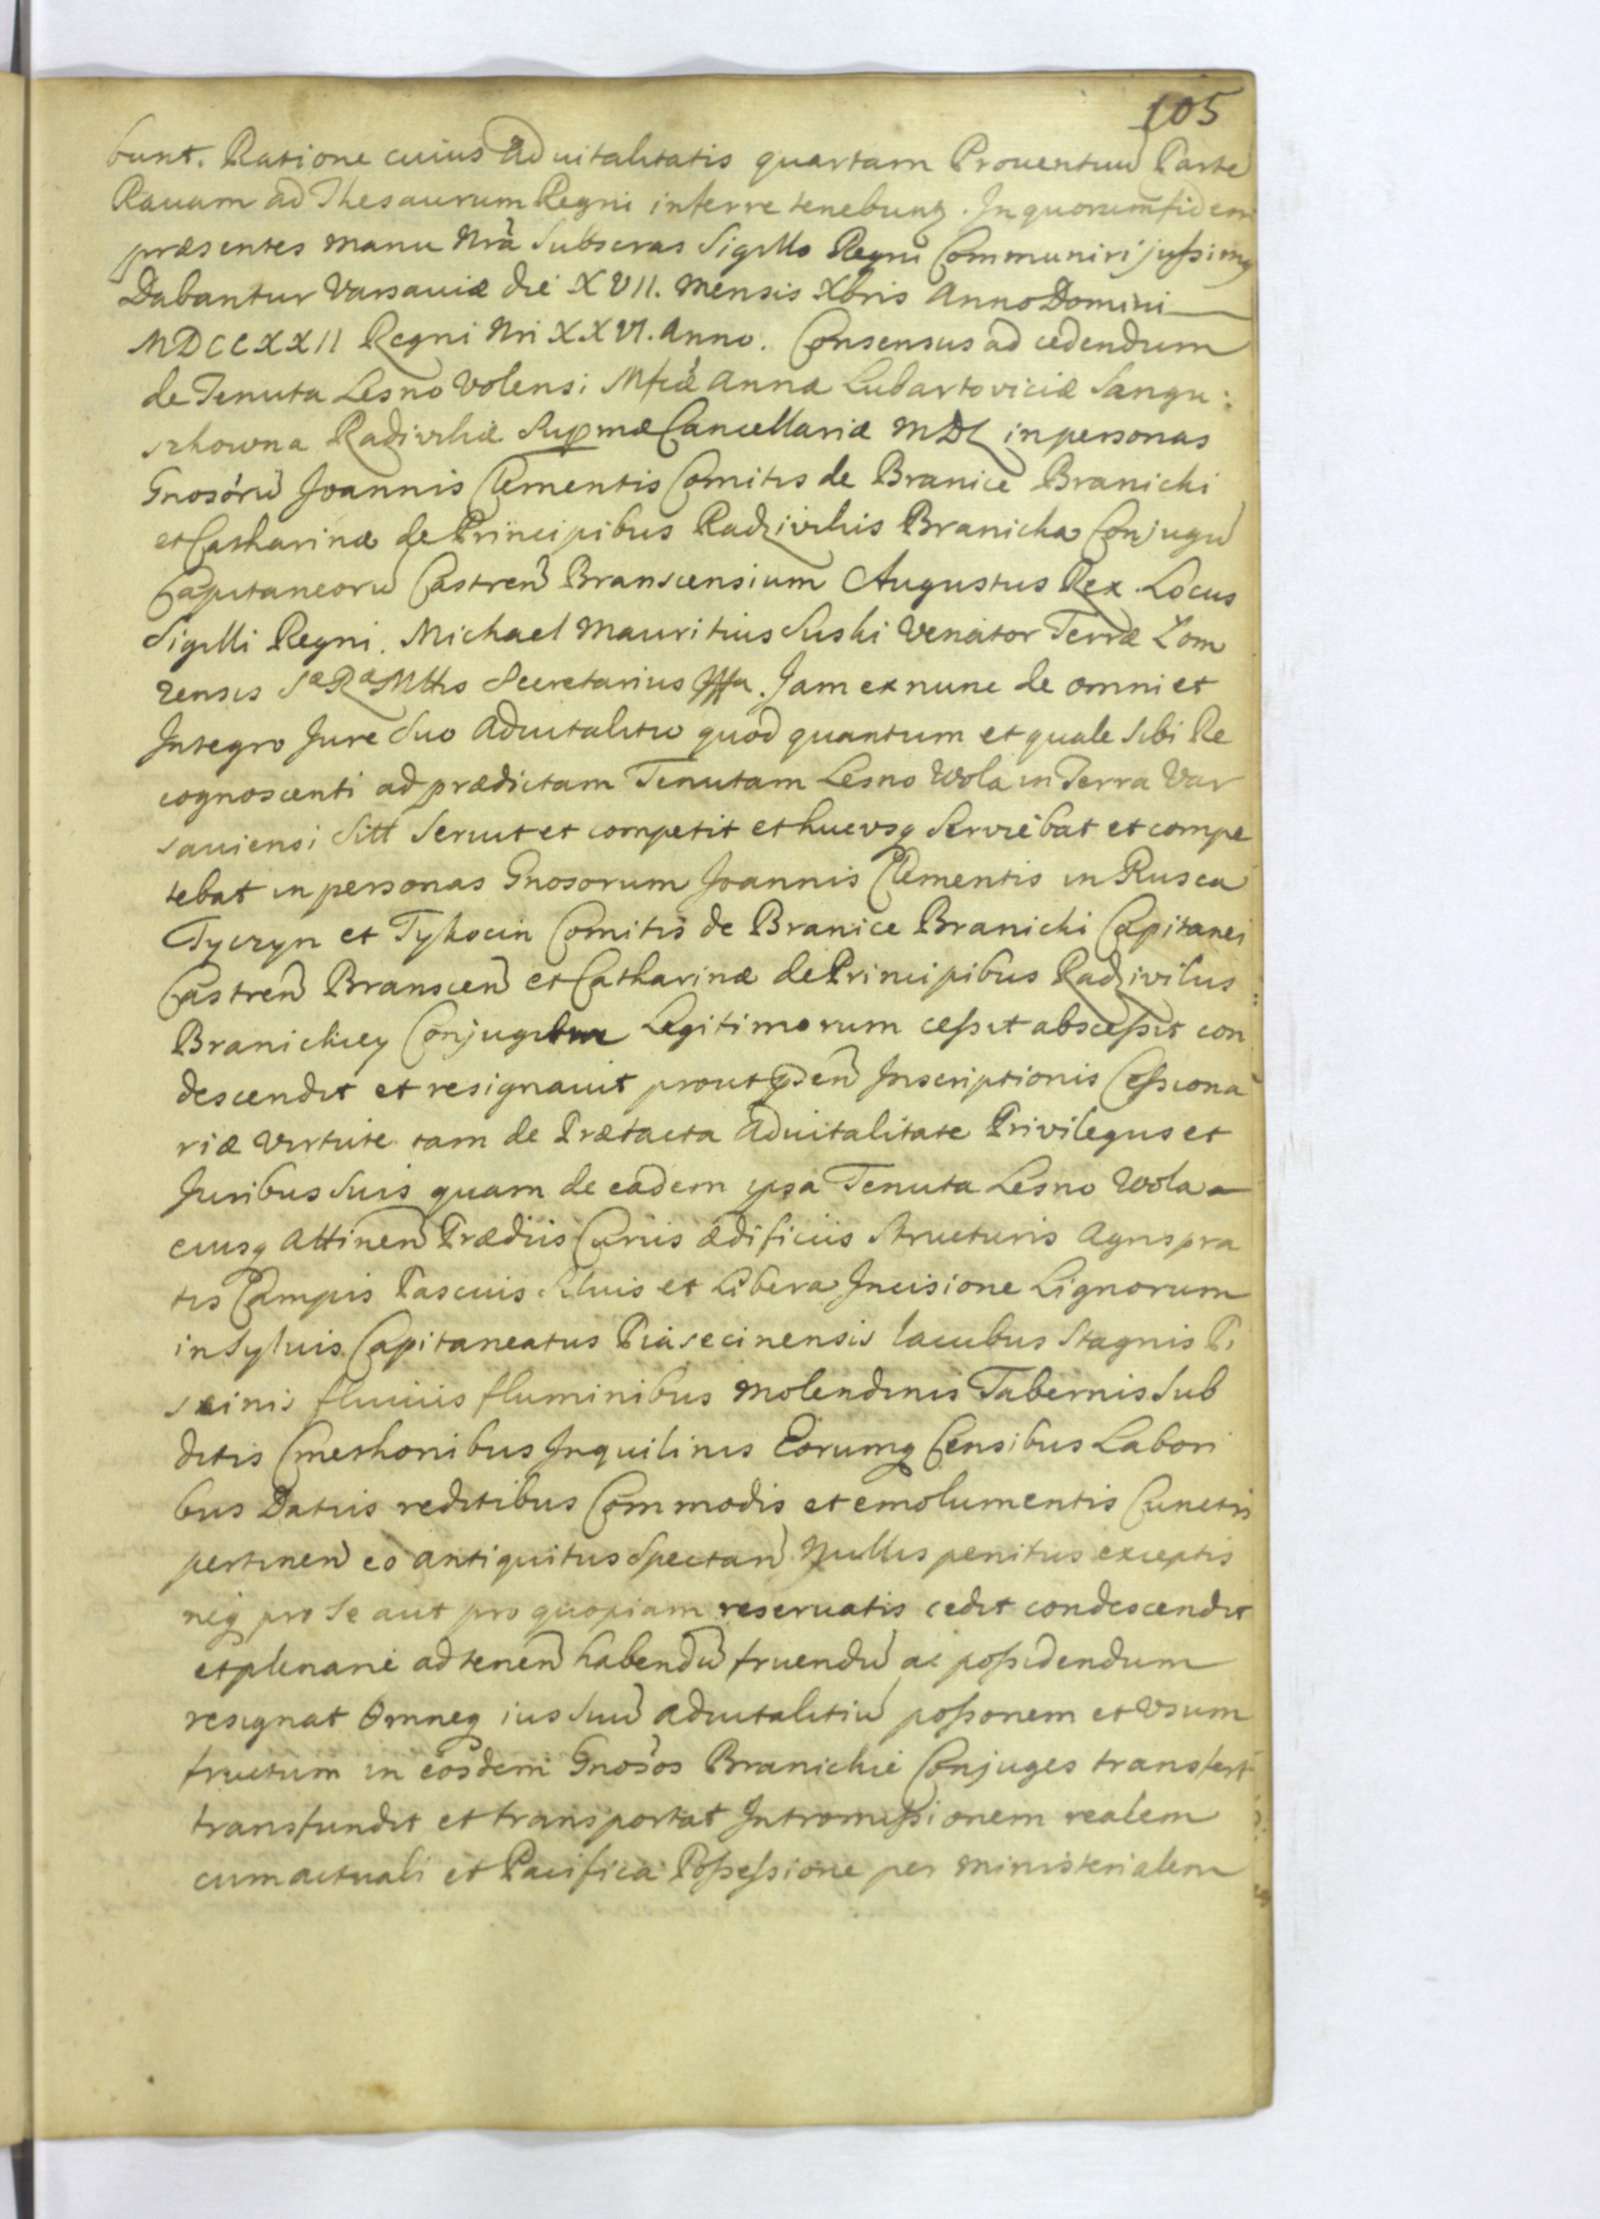 105
bunt. Ratione cuius aduitalitatis quartam Prouentuũ Parte
Rauam ad Thesaurum Regni inferre tenebunt. In quorum fidem
præsentes manu Nrã Subscras Sigillo Regni Communiri jussimq
Dabantur Varsauiæ die XVII. mensis Xbris Anno Domini
MDCCXXII Regni Nri XXVI. Anno. Consensus ad cedendum
de Tenuta Lesno Volensi Mfcæ Anna Lubartoviciæ Sangu:
szkowna Radiviliæ Supmæ Cancellariæ MDL in personas
Gnosórũ Joannis Clementis Comitis de Branice Branicki
et Catharinæ de Principibus Radziviliis Branicka Conjugũ
Capitaneorũ Castreñ Branscensium Augustus Rex. Locus
Sigilli Regni. Michael Mauritius Suski Venator Terræ Lom
zensis Sæ Ræ Mttis Secretarius. Jam ex nunc de omni et
Integro Jure Suo Aduitalitio quod quantum et quale Sibi Re
cognoscenti ad prædictam Tenutam Lesno Wola in Terra Var
sauiensi Sitt Seruit et competit et hucvsq Serviebat et compe
tebat in personas Gnosorum Joannis Clementis in Rusca
Tyczyn et Tykocin Comitis de Branice Branicki Capitanei
Castreñ Branscen̄ et Catharinæ de Principibus Radzivilus
Branickiey Conjugum Legitimorum cessit abscessit con
descendit et resignauit prout p̃señ Inscriptionis Cessiona
riæ Virtute tam de Prætacta Aduitalitate Privilegijs et
Juribus Suis quam de eadem ipsa Tenuta Lesno Wola
eiusq Attineñ Prædiis Curiis ædificiis Structuris Agris pra
tis Campis Pascuis Siluis et Libera Incisione Lignorum
in Syluis Capitaneatus Piasecinensis lacubus Stagnis Pi
scinis fluuiis fluminibus Molendinis Tabernis Sub
ditis Cmethonibus Inquilinis Eorumq Censibus Labori
bus Datiis reditibus Commodis et emolumentis Cunctis
pertineñ eo antiquitus Spectañ Nullis penitus exceptis
neq pro Se aut pro quopiam reseruatis cedit condescendit
et plenarie ad teneñ habendũ fruendũ ac possidendum
resignat Omneq ius Suũ Aduitalitiũ possonem et Vsum
fructum in eosdem Gnosos Branickie Conjuges transfert
transfundit et transportat Intromissionem realem
cum actuali et Pacifica Possessione per Ministerialem